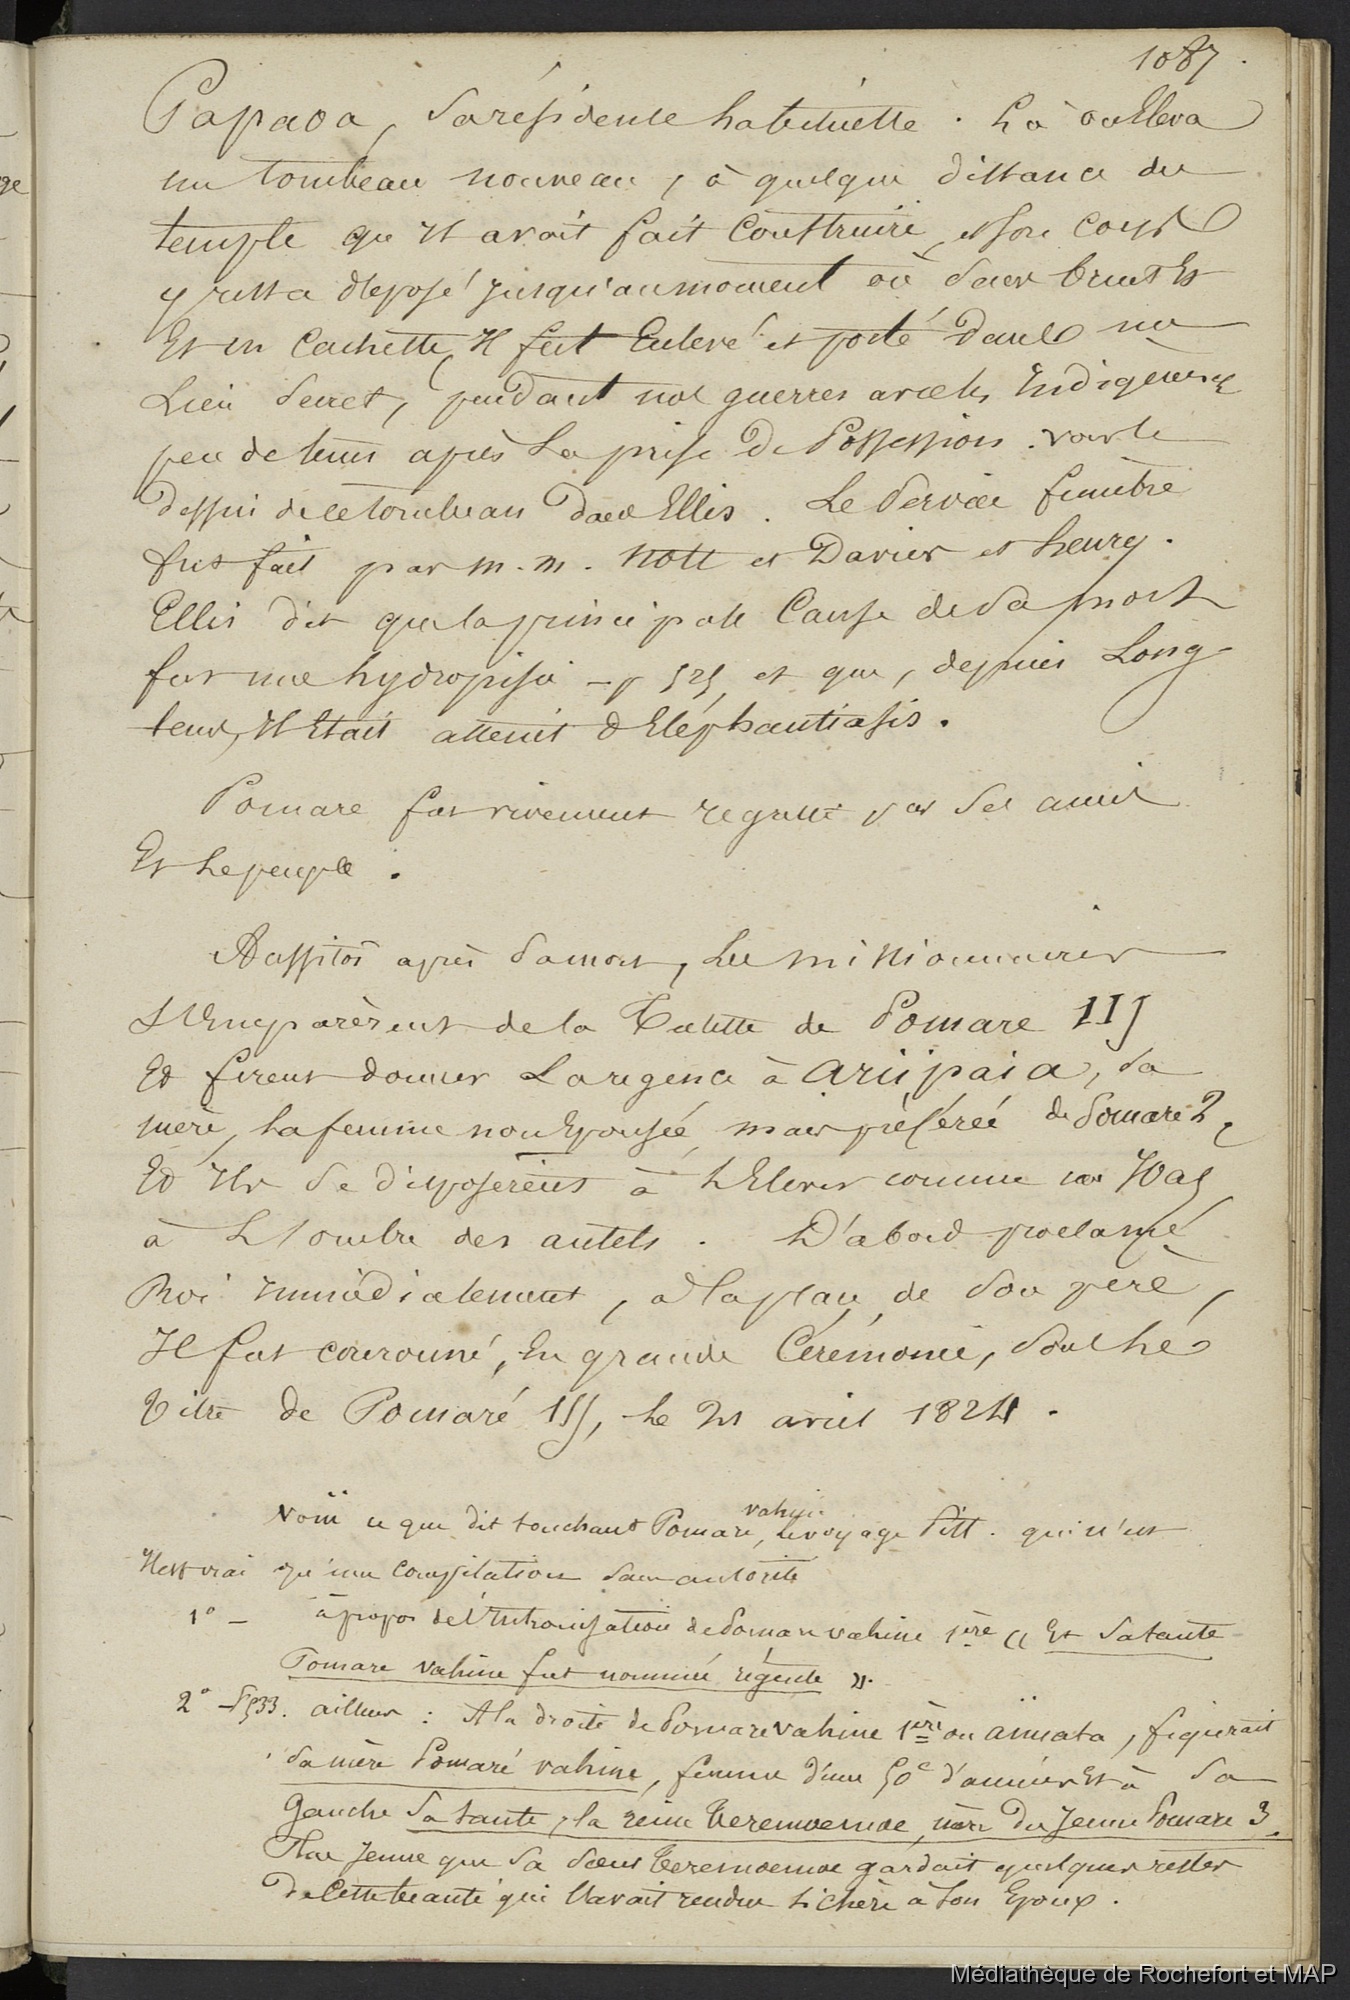 1087.
Papaoa, sa résidence habituelle. Là on Eleva
un tombeau nouveau, à quelque distance du
temple qu'Il avait fait Construire, et son corps
y resta déposé jusqu'au moment où sans bruit Et
Et en Cachette, Il fut Enlevé et porté dans un
Lieu secret, pendant nos guerres avec les Indigènes,
peu de tems après La prise de Possession. voir le
dessin de ce tombeau dans Ellis. Le service funèbre
fut fait par m.m. Nott et Davies et henry.
Ellis dit que la principale Cause de sa mort
fut une hydropisie - p 525, et que, depuis Long-
tems, Il Etait atteint d'Eléphantiasis.
Pomare fut vivement regretté par ses amis
Et Le peuple.
Aussitôt après sa mort, Les missionnaires
s'Emparèrent de la Tutelle de Pomare III
Et firent donner La régence à Ariipaia, sa
mère, la femme non Epousée, mais préférée de Pomare 2,
Et Ils se disposèrent à L'Elever comme un Joas
à L'ombre des autels. D'abord proclamé
Roi Immédiatement, à la place de son père,
Il fut couronné, En grande Cérémonie, sous Le
titre de Pomaré III, Le 21 avril 1824.
Voici ce que dit touchant Pomare vahine, Le voyage Pitt. qui n'est
Il est vrai qu'une compilation sans autorité
1° - à propos de l'Intronisation de Pomare vahine 1ère « Et sa tante
Pomare vahine fut nommée régente ».
2° - P 533. ailleurs : A la droite de Pomare vahine 1ère ou aïmata, figurait
sa mère Pomaré vahine, femme d'une 50e d'années Et à sa
gauche sa tante, la reine Teremoemoe, mère du Jeune Pomare 3.
Plus Jeune que sa sœur Teremoemoe gardait quelques restes
de Cette beauté qui l'avait rendue si chère à son Epoux.
Médiathèque de Rochefort et MAP